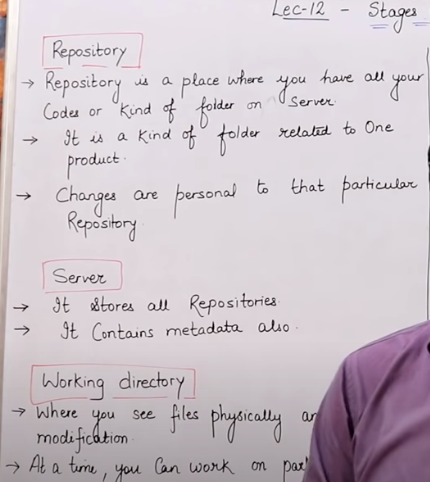 Lec-12 - Stages
Repository
→ Repository is a place where you have all your
Codes or Kind of folder on Server.
→ It is a Kind of folder related to One
product.
→ Changes are personal to that particular
Repository.
Server
→ It Stores all Repositories.
→ It Contains metadata also.
Working directory
→ Where you see files physically
modification.
→ At a time, you Can work on